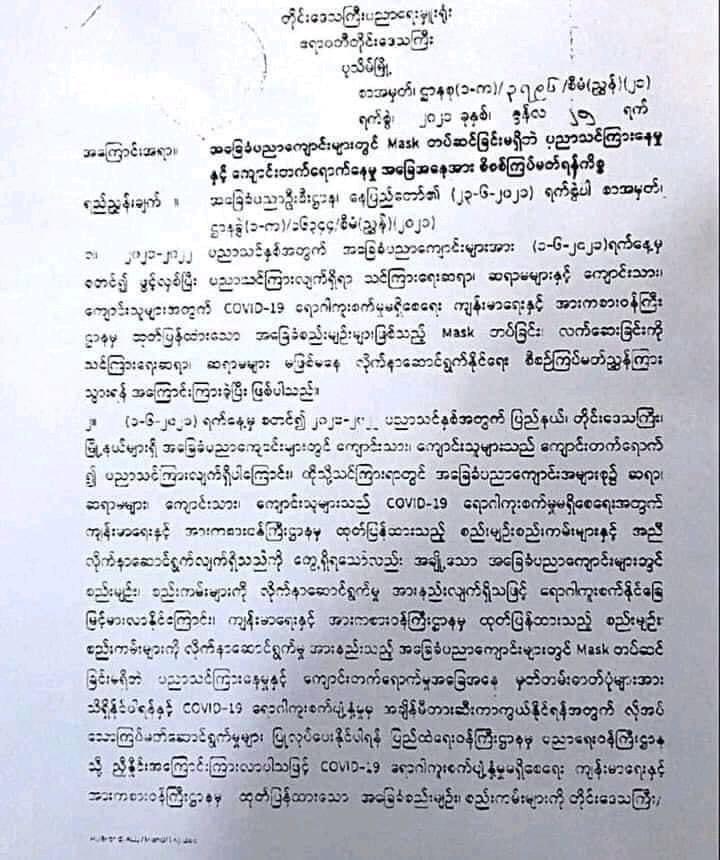 တိုင်းဒေသကြီးပညာရေးမှူးရုံး
ဧရာဝတီတိုင်းဒေသကြီး
ပုသိမ်မြို့
စာအမှတ်၊ ဌာနစု(၁-က)/၃၇၉၆/စီမံ(ညွှန်)(၂၁)
ရက်စွဲ၊ ၂၀၂၁ ခုနှစ်၊ ဇွန်လ ၂၅ ရက်
အကြောင်းအရာ။ အခြေခံပညာကျောင်းများတွင် Mask တပ်ဆင်ခြင်းမရှိဘဲ ပညာသင်ကြားနေမှု
နှင့် ကျောင်းတက်ရောက်နေမှု အခြေအနေအား စိစစ်ကြပ်မတ်ရန်ကိစ္စ
ရည်ညွှန်းချက် ။ အခြေခံပညာဦးစီးဌာန၊ နေပြည်တော်၏ (၂၃-၆-၂၀၂၁) ရက်စွဲပါ စာအမှတ်၊
ဌာနခွဲ(၁-က)/၁၆၃၄၄/စီမံ(ညွှန်)(၂၀၂၁)
၁။ ၂၀၂၁-၂၀၂၂ ပညာသင်နှစ်အတွက် အခြေခံပညာကျောင်းများအား (၁-၆-၂၀၂၁)ရက်နေ့မှ
စတင်၍ ဖွင့်လှစ်ပြီး ပညာသင်ကြားလျက်ရှိရာ သင်ကြားရေးဆရာ၊ ဆရာမများနှင့် ကျောင်းသား၊
ကျောင်းသူများအတွက် COVID-19 ရောဂါကူးစက်မှုမရှိစေရေး ကျန်းမာရေးနှင့် အားကစားဝန်ကြီး
ဌာနမှ ထုတ်ပြန်ထားသော အခြေခံစည်းမျဉ်းများဖြစ်သည့် Mask တပ်ခြင်း၊ လက်ဆေးခြင်းကို
သင်ကြားရေးဆရာ၊ ဆရာမများ မဖြစ်မနေ လိုက်နာဆောင်ရွက်နိုင်ရေး စီစဉ်ကြပ်မတ်ညွှန်ကြား
သွားရန် အကြောင်းကြားခဲ့ပြီး ဖြစ်ပါသည်။
၂။ (၁-၆-၂၀၂၁) ရက်နေ့မှ စတင်၍ ၂၀၂၁-၂၀၂၂ ပညာသင်နှစ်အတွက် ပြည်နယ်၊ တိုင်းဒေသကြီး၊
မြို့နယ်များရှိ အခြေခံပညာကျောင်းများတွင် ကျောင်းသား၊ ကျောင်းသူများသည် ကျောင်းတက်ရောက်
၍ ပညာသင်ကြားလျက်ရှိပါကြောင်း၊ ထိုသို့သင်ကြားရာတွင် အခြေခံပညာကျောင်းအများစု၌ ဆရာ၊
ဆရာမများ၊ ကျောင်းသား၊ ကျောင်းသူများသည် COVID-19 ရောဂါကူးစက်မှုမရှိစေရေးအတွက်
ကျန်းမာရေးနှင့် အားကစားဝန်ကြီးဌာနမှ ထုတ်ပြန်ထားသည့် စည်းမျဉ်းစည်းကမ်းများနှင့် အညီ
လိုက်နာဆောင်ရွက်လျက်ရှိသည်ကို တွေ့ရှိရသော်လည်း အချို့သော အခြေခံပညာကျောင်းများတွင်
စည်းမျဉ်း၊ စည်းကမ်းများကို လိုက်နာဆောင်ရွက်မှု အားနည်းလျက်ရှိသဖြင့် ရောဂါကူးစက်နိုင်ခြေ
မြင့်မားလာနိုင်ကြောင်း၊ ကျန်းမာရေးနှင့် အားကစားဝန်ကြီးဌာနမှ ထုတ်ပြန်ထားသည့် စည်းမျဉ်း
စည်းကမ်းများကို လိုက်နာဆောင်ရွက်မှု အားနည်းသည့် အခြေခံပညာကျောင်းများတွင် Mask တပ်ဆင်
ခြင်းမရှိဘဲ ပညာသင်ကြားနေမှုနှင့် ကျောင်းတက်ရောက်မှုအခြေအနေ မှတ်တမ်းဓာတ်ပုံများအား
သိရှိနိုင်ပါရန်နှင့် COVID-19 ရောဂါကူးစက်ပျံ့နှံ့မှုမှ အချိန်မီတားဆီးကာကွယ်နိုင်ရန်အတွက် လိုအပ်
သောကြပ်မတ်ဆောင်ရွက်မှုများ ပြုလုပ်ပေးနိုင်ပါရန် ပြည်ထဲရေးဝန်ကြီးဌာနမှ ပညာရေးဝန်ကြီးဌာန
သို့ ညှိနှိုင်းအကြောင်းကြားလာပါသဖြင့် COVID-19 ရောဂါကူးစက်ပျံ့နှံ့မှုမရှိစေရေး ကျန်းမာရေးနှင့်
အားကစားဝန်ကြီးဌာနမှ ထုတ်ပြန်ထားသော အခြေခံစည်းမျဉ်း၊ စည်းကမ်းများကို တိုင်းဒေသကြီး/